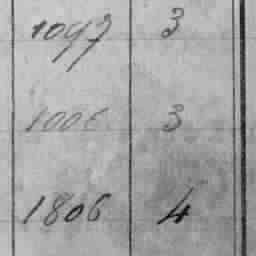 1097 3
1006 3
1806 4